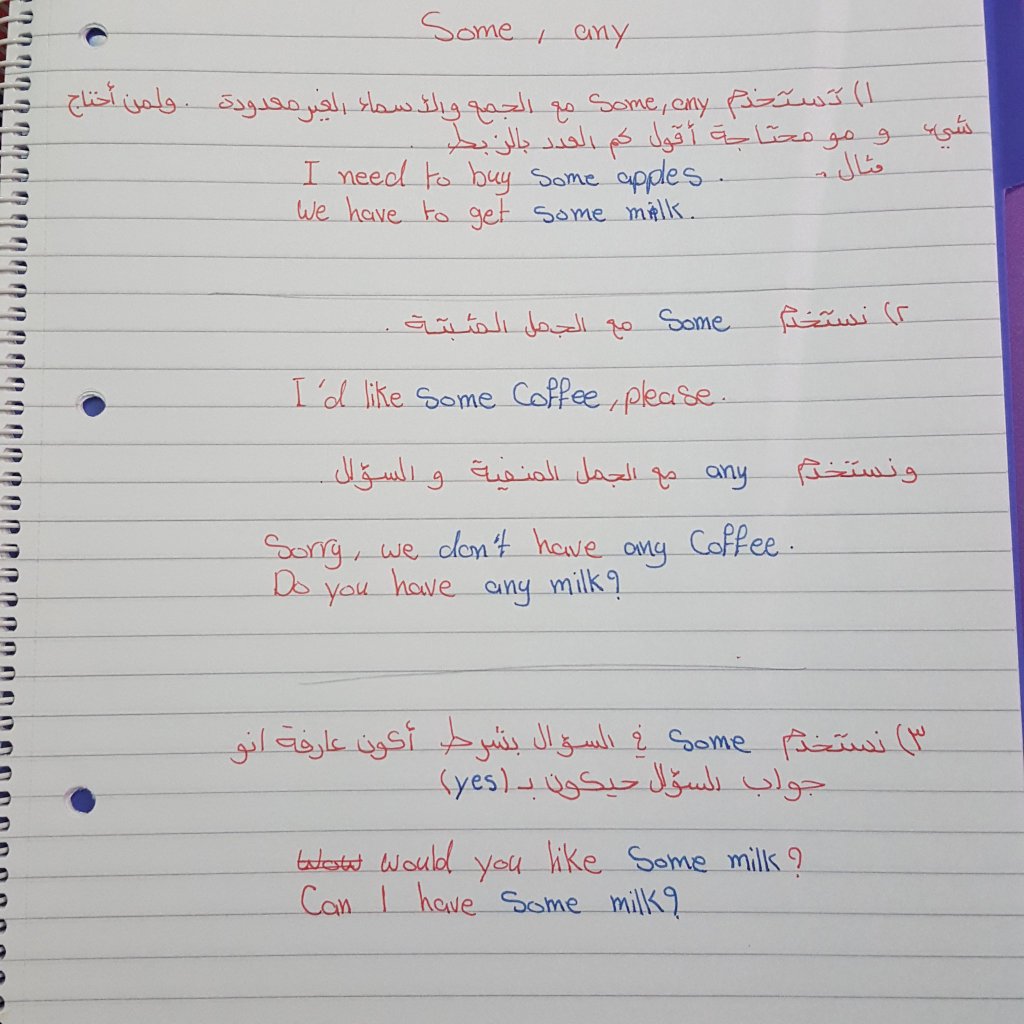 Some, any
١) تستخدم Some, any مع الجمع والأسماء الغير معدودة. ولمن أحتاج
شيء و مو محتاجة أقول كم العدد بالزبط.
مثال
I need to buy some apples.
We have to get some milk.
٢) نستخدم Some مع الجمل المثبتة.
I'd like some Coffee, please.
ونستخدم any مع الجمل المنفية و السؤال.
Sorry, we don't have any Coffee.
Do you have any milk?
٣) نستخدم Some في السؤال بشرط أكون عارفة انو
جواب السؤال حيكون بـ (yes)
would you like Some milk?
Can I have Some milk?